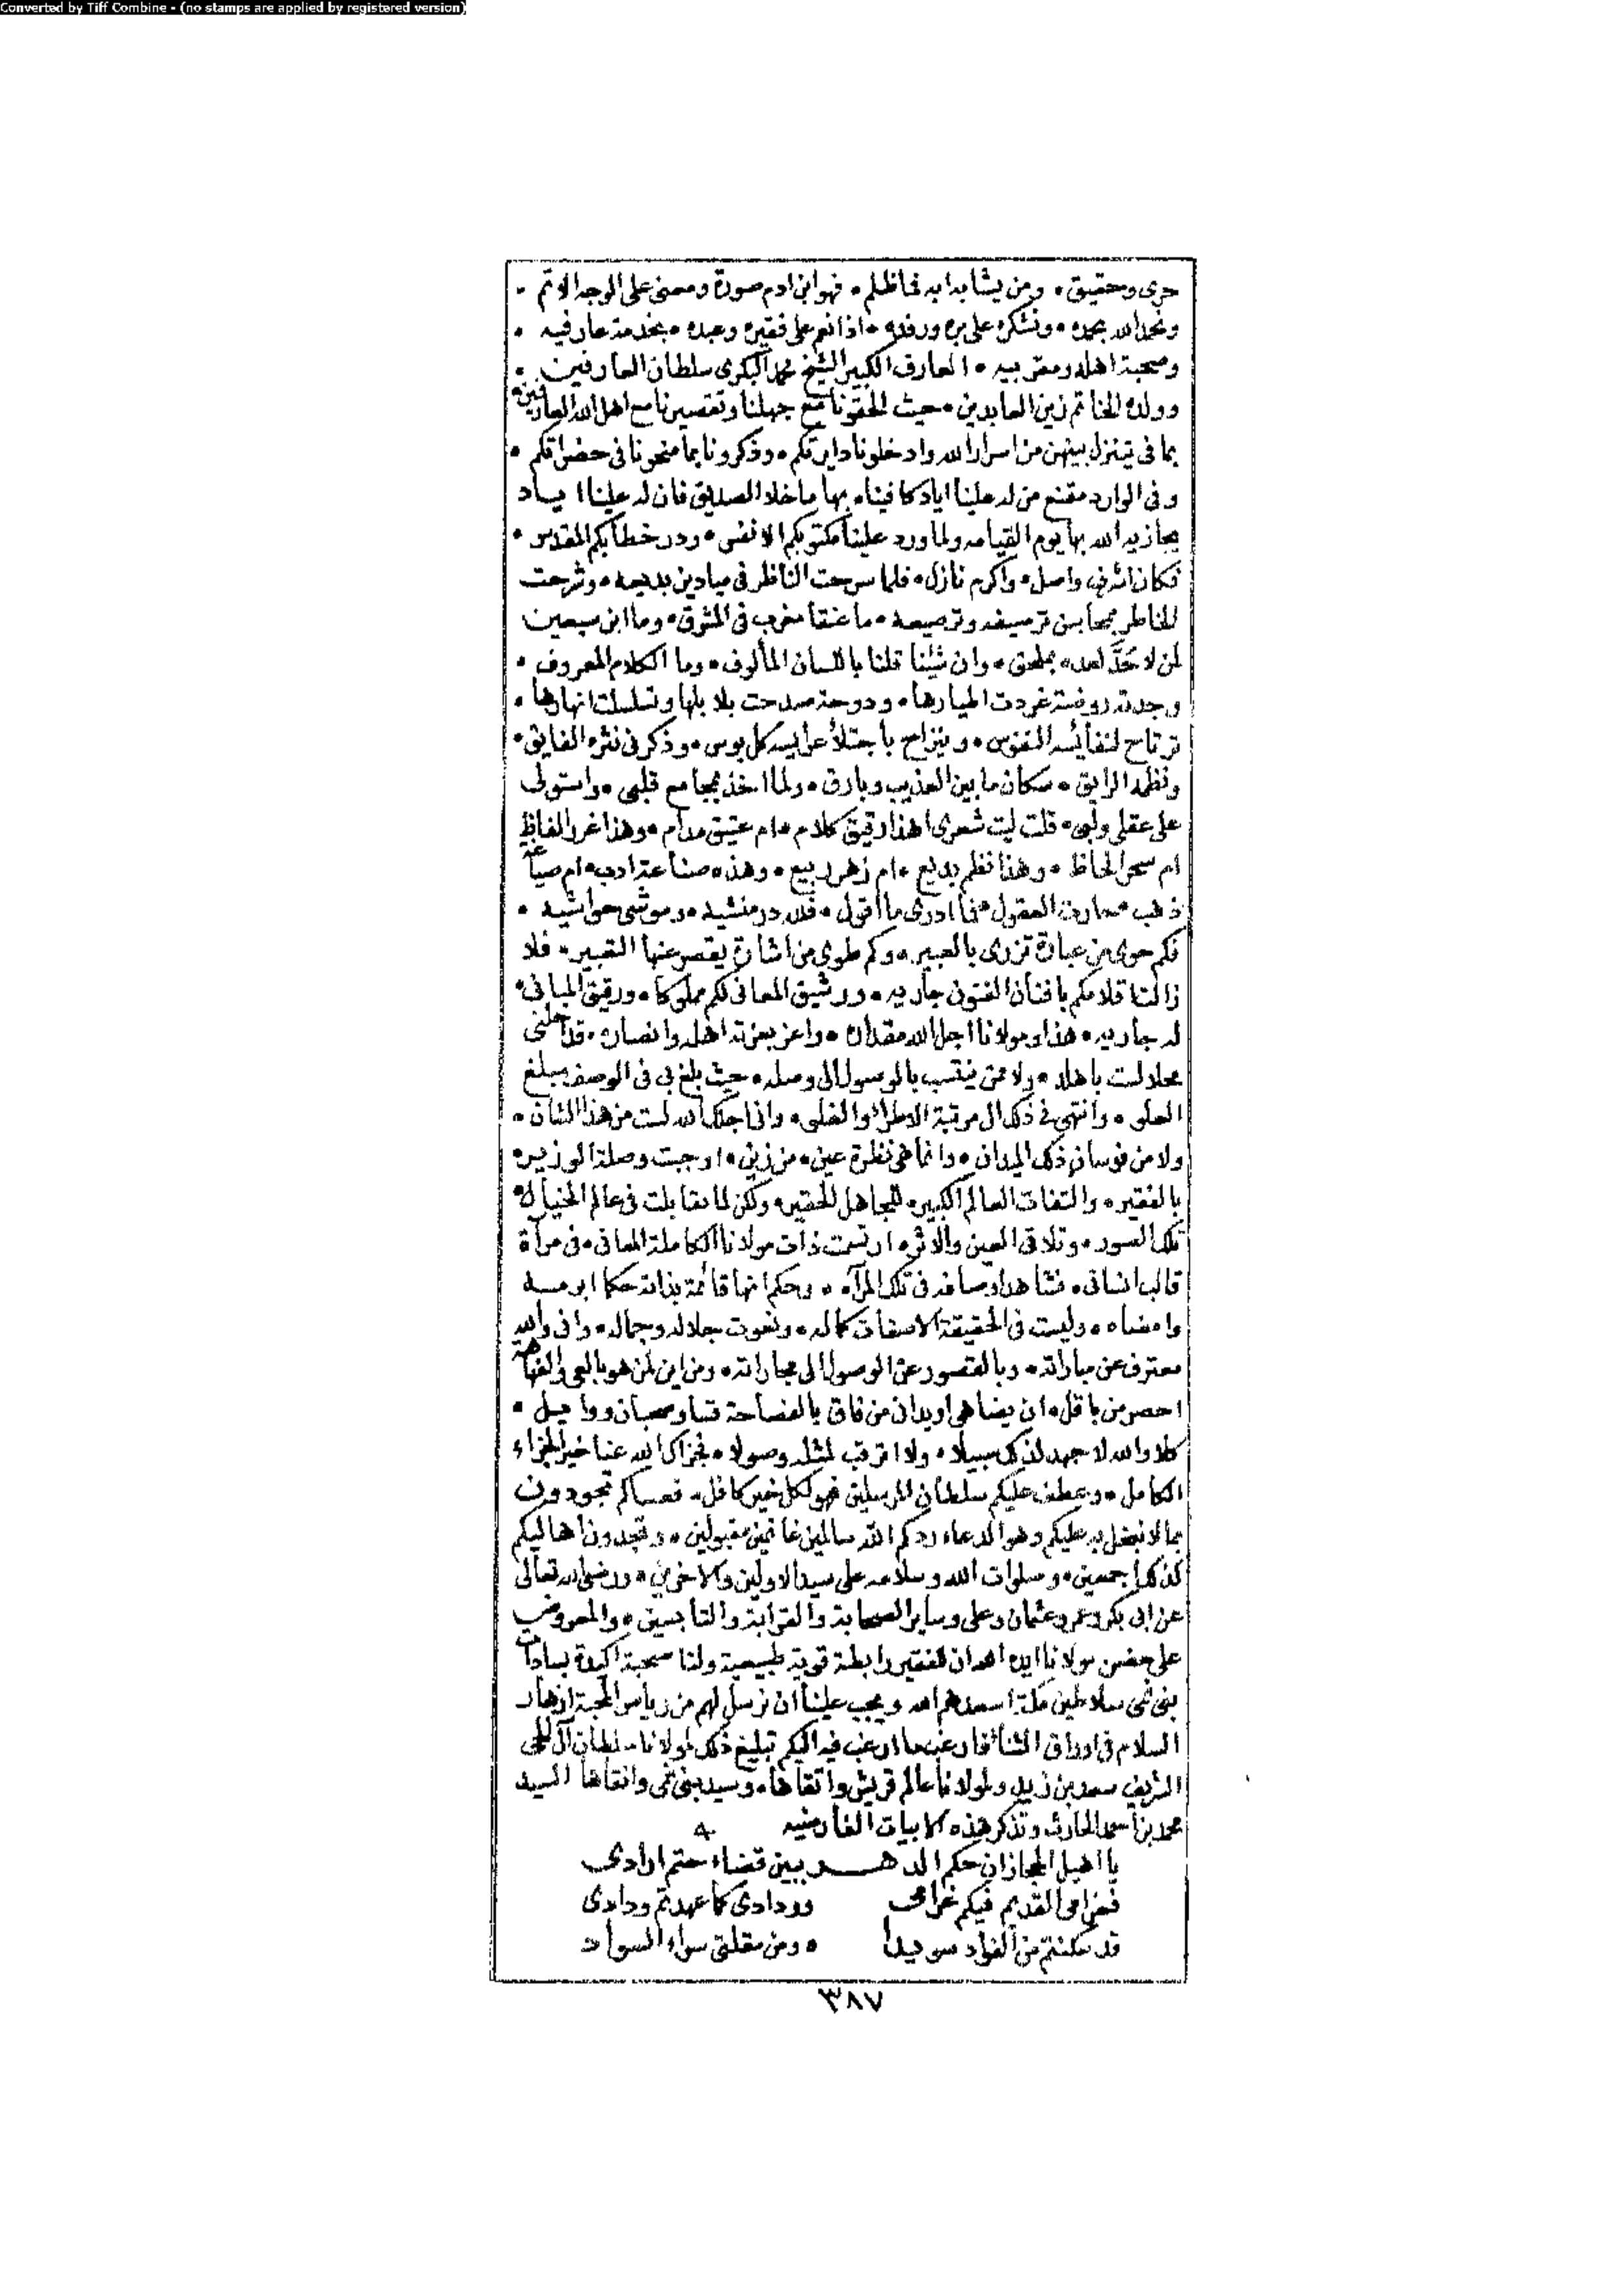 Converted by Tiff Combine - (no stamps are applied by registered version)
حرى وحقيق • ومن يشابه ابه فما ظلم • فهو ابن ادم صورة ومعنى على الوجه الاتم •
ونحمد الله بحمده • ونشكره على بره ورفده • اذ انعم على فقيره وعبده • بخدمة عارفيه •
وصحبة اهله ومقربيه • العارف الكبير الشيخ محمد البكرى سلطان العارفين •
وولده الخاتم زين العابدين • حيث الحقونا مع جهلنا وتقصيرنا مع اهل الله العارفين •
بما فى تيتنزل بينهن من اسرار الله وادخلونا دايرتكم • وذكرونا بما منحونا فى حضراتكم •
وفى الوارد مقنع من له علينا اياد كافيناه بها ما خلا الصديق فان له علينا اياد
يجازيه الله بها يوم القيامه ولما ورد علينا مكتوبكم الانفس • ودر خطابكم المقدس •
فكان اشرف واصل • واكرم نازل • فلما سرحت الناظر فى ميادين بديعه • وشرحت
الخاطر بمحاسن ترصيفه وترصيعه • ما عنقا مغرب فى المشرق • وما ابن سبعين
لمن لا حد لعده بملحق • وان شئنا قلنا باللسان المألوف • وما الكلام المعروف •
وجدته روضة غردت اطيارها • ودوحة صدحت بلابلها وتسلسلت انهارها •
ترتاح لنفائسه النفوس • وينزاح باجتلاء عرايسه كل بوس • وذكر فى نثره الفايق •
ونظمه الرايق • سكان ما بين العذيب وبارق • ولما اخذ بمجامع قلبى • واستولى
على عقلى ولبى • قلت ليت شعرى اهذا رقيق كلام • ام عتيق مدام • وهذا غرر الفاظ
ام سحر الحاظ • وهذا نظم بديع • ام زهر ربيع • وهذه صناعة ادب • ام صياغة
ذهب • حارت العقول • فما ادرى ما اقول • فلله در منشيه • وموشى حواشيه •
فكم حوى من عبارة تزرى بالعبير • وكم طوى من اشارة يقصر عنها التعبير • فلا
زالت اقلامكم بافنان الفنون جاريه • ورشيق المعانى لكم مملوكا • ورقيق المبانى
له جاريه • هذا ومولانا اجل الله مقداره • واعز بعزته اهله وانصاره • قد احلنى
محلا لست باهله • ولا ممن ينتسب بالوصول الى وصله • حيث بلغ بى فى الوصف مبلغ
العلو • وانتهى فى ذلك الى مرتبة الاطراء والغلو • وانا اجلك الله لست من هذا الشان •
ولا من فرسان ذلك الميدان • وانما هى نظرة عين • من زين • اوجبت وصلة الوزير
بالفقير • والتفات العالم الكبير • للجاهل الحقير • ولكن لما تقابلت فى عالم الخيال
تلك الصور • وتلاقى العين والاثر • ارتسمت ذات مولانا الكاملة المعانى • فى مرآة
قالب انسانى • فشاهد اوصافه فى تلك المرآه • وحكم انها قائمة بذاته حكما ابرمه
وامضاه • وليست فى الحقيقة الا صفات كماله • ونعوت جلاله وجماله • وانى والله
معترف عن مباراته • وبالقصور عن الوصول الى مجاراته • ومن اين لمن هو بالعى والفهاهة
احصر من باقل • ان يضاهى او يدانى من فاق بالفصاحة قسا وسحبان ووايل •
كلا والله لا جهد لذلك سبيلا • ولا ترقب لمثله وصولا • فجزاك الله عنا خير الجزاء
الكامل • وعطف عليكم سلطان المرسلين فهو لكل خير كافل • فعساكم تجودون
بما لا نبخل به عليكم وهو الدعاء ردكم الله سالمين غانمين مقبولين • وتجدون اهاليكم
كذلك اجمعين • وصلوات الله وسلامه على سيد الاولين والاخرين • ورضى الله تعالى
عن ابى بكر وعمر وعثمان وعلى وساير الصحابة والقرابة والتابعين • والمعروض
على حضرة مولانا ايده الله ان للفقير رابطة قوية طبيعية ولنا صحبة اكيدة بسادات
بنى نمى سلاطين مكة اسعدهم الله ويجب علينا ان نرسل لهم من رياض المحبة ازهار
السلام فى اوراق الثنا فارغب ما ارغب فيه اليكم تبليغ ذلك لمولانا سلطان آل
الشريف سعد بن زيد ولمولانا عالم قريش واتقاها • وسيد بنى نمى وانقاها السيد
محمد بن احمد الحارث وتذكر هذه الابيات الفارضيه
يا اهيل الحجاز ان حكم الدهـــر ببين قضاء حتم ارادى
فغرامى القديم فيكم غرامى وودادى كما عهدتم ودادى
قد سكنتم من الفواد سويدا • ومن مقلتى سواء السواد
٣٨٧